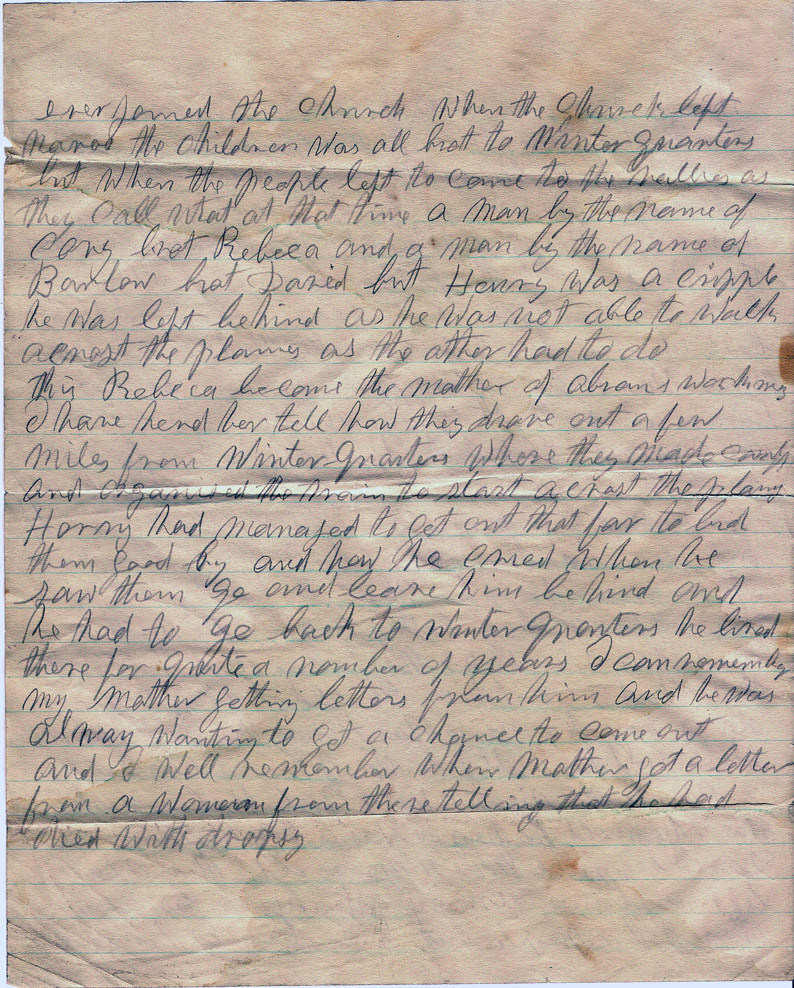 ever joined the Church When the Church left
Navoo the children Was all brot to Winter quarters
but When the people left to come to the vallies as
they call what at that time a man by the name of
Cory brot Rebeca and a man by the name of
Barlow brot David but Henry Was a cripple
he Was left behind as he was not able to walk
acrost the plaines as the other had to do
this Rebeca become the mother of abrans
I have herd her tell how they drove out a few
miles from Winter quarters Where they made camp
and organised the train to start acrost the plains
Henry had managed to get out that far to bid
them good by and how he cried When he
saw them go and leave him behind and
he had to go back to Winter Quarters he lived
there for quite a number of years I can remember
my mother getting letters from him and he was
alway Wanting to get a chance to come out
and I Well remember When Mother got a letter
from a Woman from there telling that he had
died With dropsy